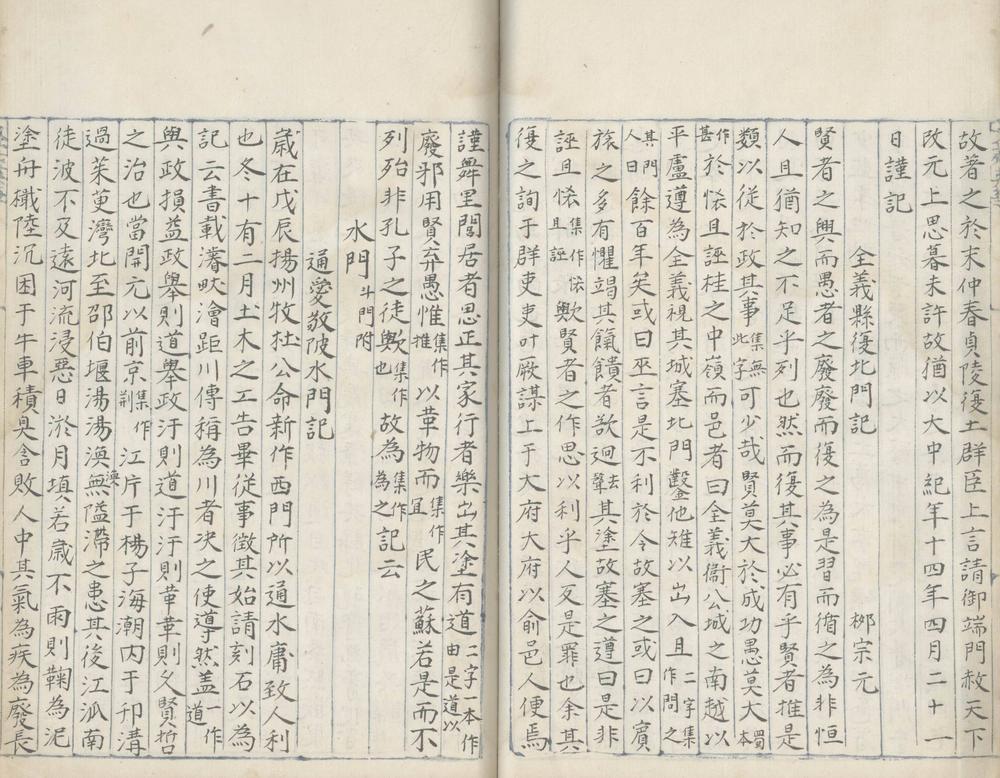 故著之於末仲春貞陵復土群臣上言請御端門赦天下
改元上思慕未許故猶以大中紀年十四年四月二十一
日謹記
全義縣復北門記 栁宗元
賢者之興而愚者之廢廢而復之為是習而循之為非恒
人且猶知之不足乎列也然而復其事必有乎賢者推是
類以從於政其事集無此字可少哉賢莫大於成功愚莫大蜀本
作甚於恡且誣桂之中嶺而邑者曰全義衛公城之南越以
平盧遵為全義視其城塞北門鑿他雉以出入且二字集作問之
其門人曰餘百年矣或曰巫言是不利於令故塞之或曰以賓
旅之多有懼竭其餼饋者欲迴去聲其塗故塞之遵曰是非
誣且恡集作恡且誣歟賢者之作思以利乎人反是罪也余其
復之詢于群吏吏叶厥謀上于大府大府以俞邑人便焉
謹舞里閭居者思正其家行者樂出其塗有道二字一本作由是道以
廢邪用賢弃愚惟集作推以革物而集作宜民之蘇若是而不
列殆非孔子之徒歟集作也故為集作為之記云
水門斗門附
通愛敬陂水門記
歲在戊辰揚州牧杜公命新作西門所以通水庸致人利
也冬十有二月土木之工告畢従事徵其始請刻石以為
記云書載濬畎澮距川傳稱為川者決之使導然盖一作道
與政損益政舉則道舉政汙則道汙汙則革革則乂賢哲
之治也當開元以前京集作荆江岸于楊子海潮内于邗溝
過茱萸灣北至邵伯堰湯湯渙渙無隘滯之患其後江派南
徒波不及遠河流浸惡日淤月填若歲不雨則鞠為泥
塗舟檝陸沉困于牛車積臭含敗人中其氣為疾為廢長